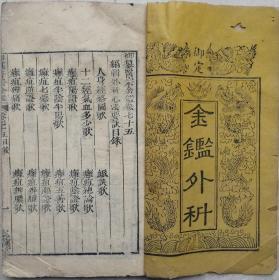 御定
金鑑外科
醫宗金鑑卷七十五
編輯外科心法要訣目錄
脈訣歌
十二經氣血多少歌 癰疽總論歌
癰疽陽證歌 癰疽陰證歌
癰疽半陰半陽歌 癰疽五善歌
癰疽七惡歌 癰疽順證歌
癰疽逆證歌 癰疽辨腫歌
癰疽辨痛歌 癰疽辨膿歌